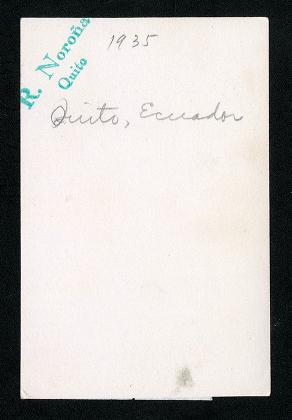 R. Noroña
Quito
1935
Quito, Ecuador